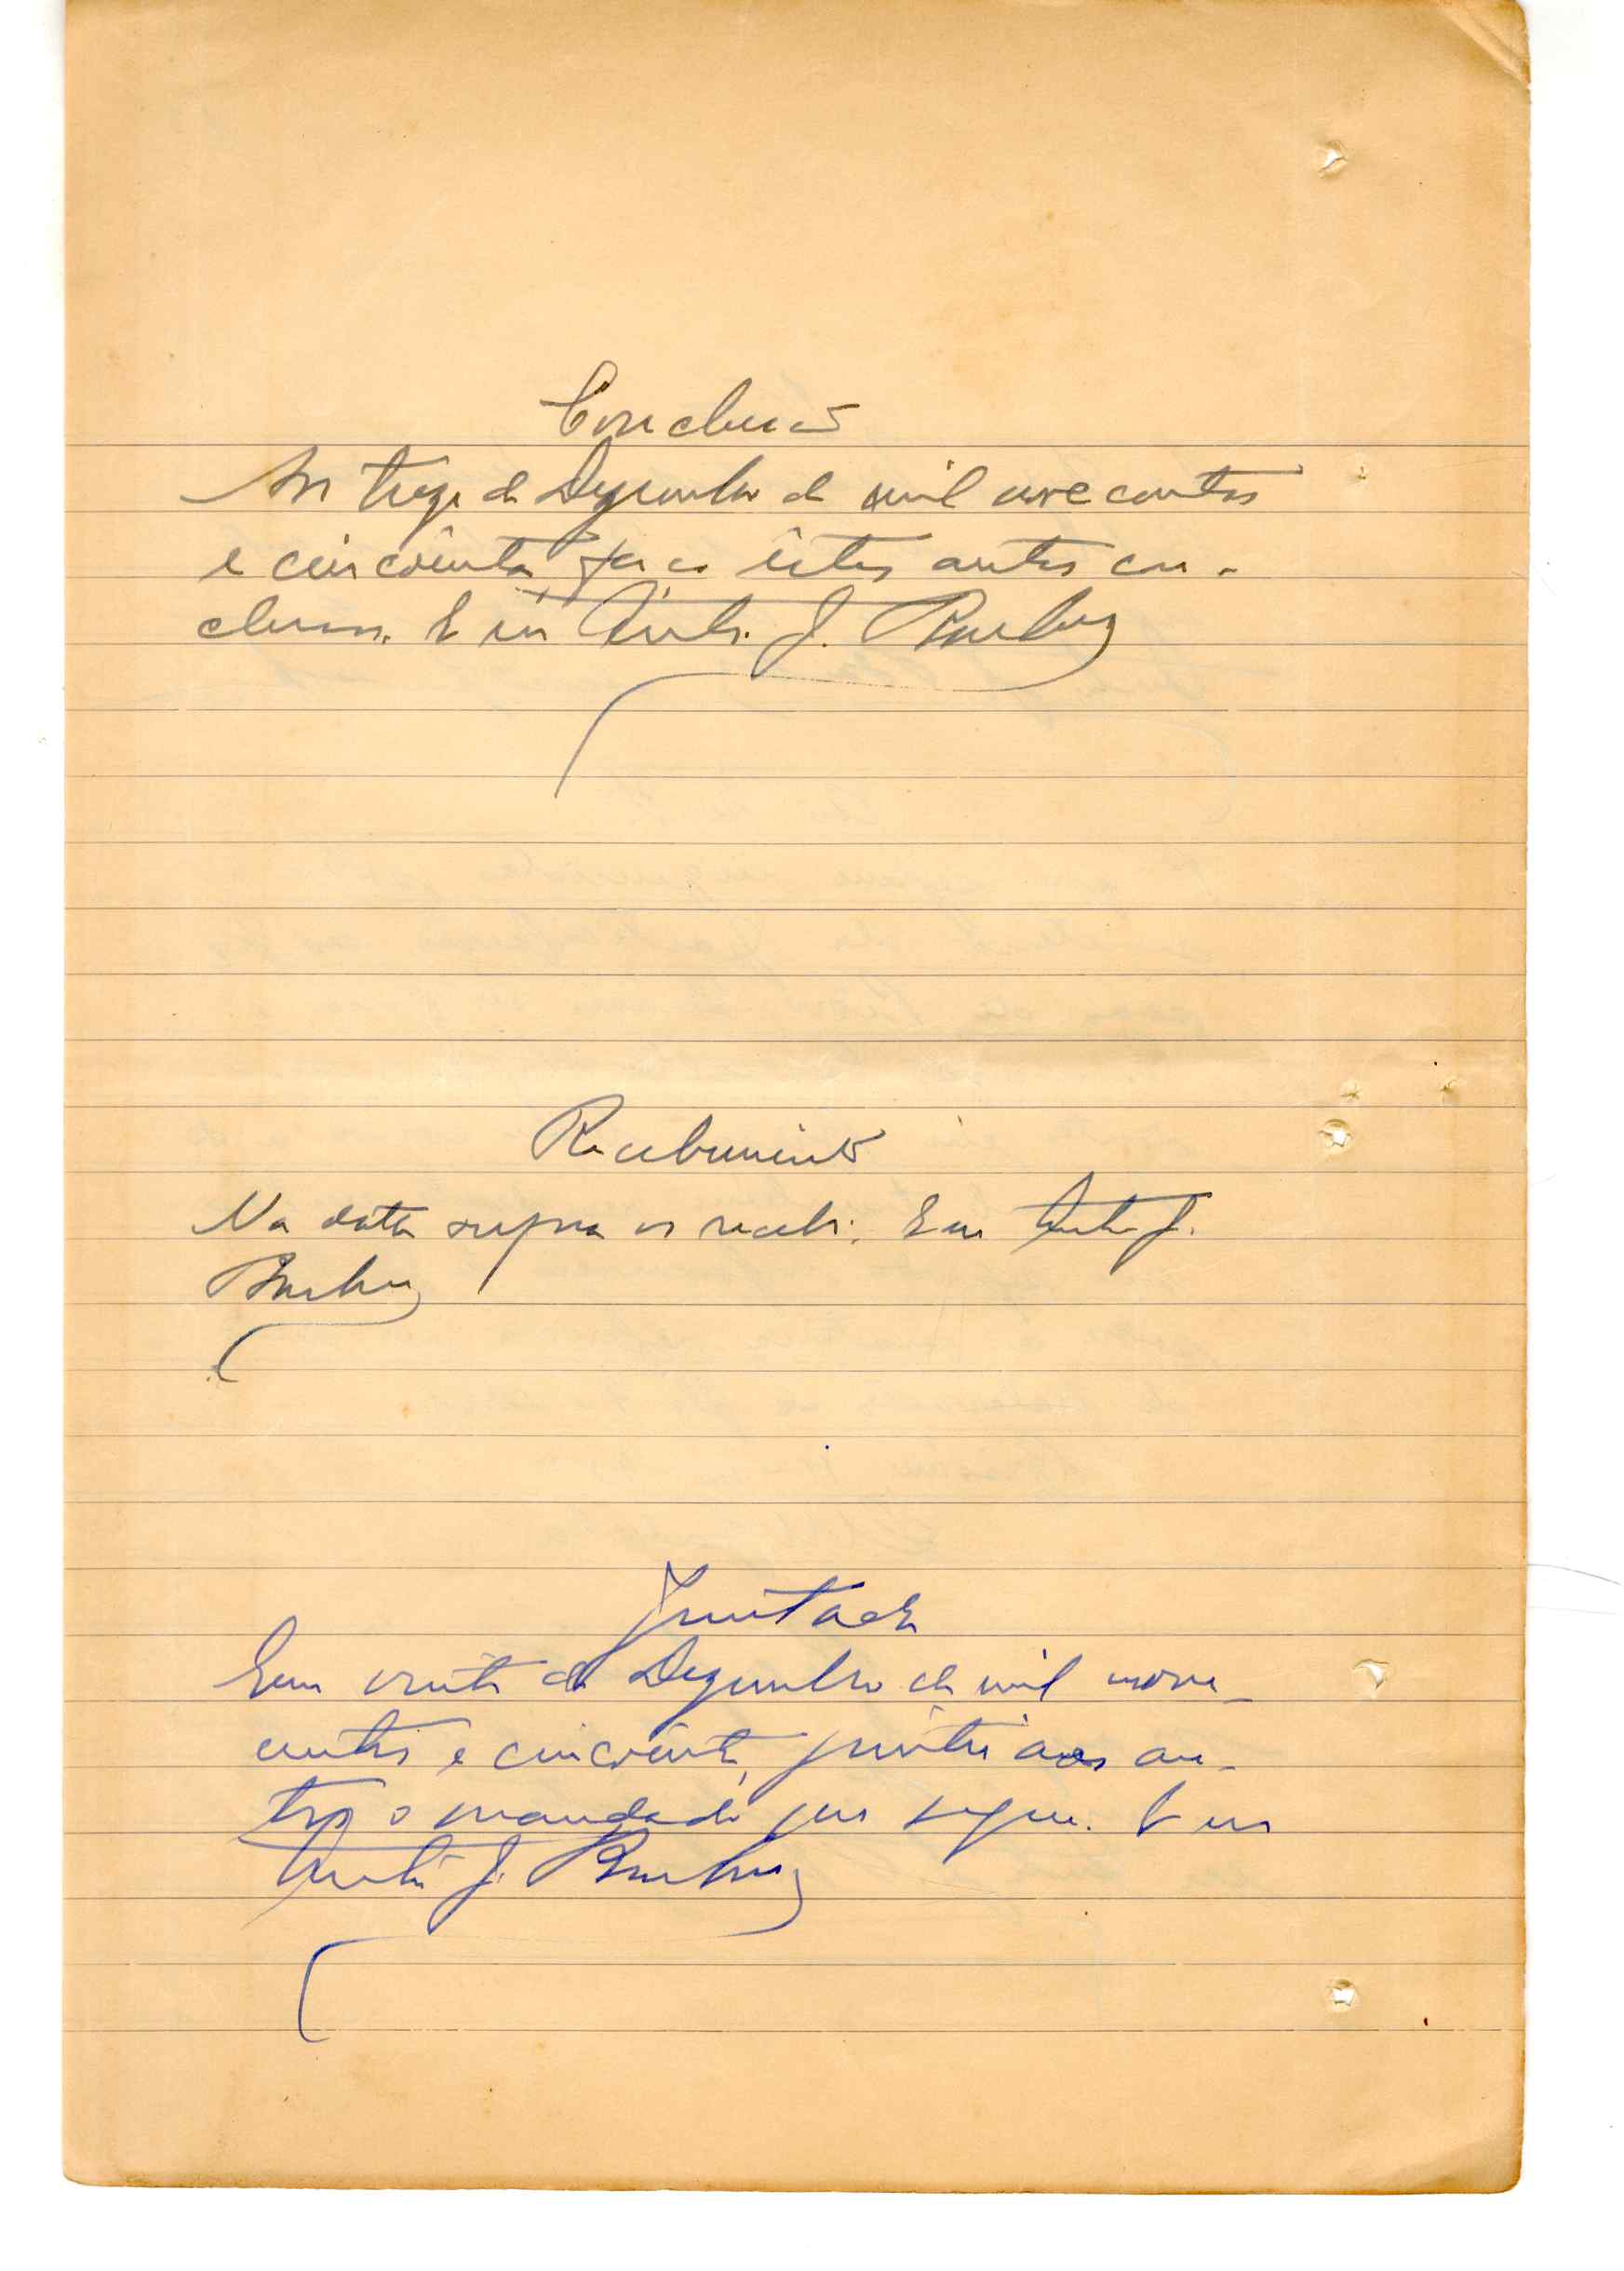 Conclusão
Aos treze de Dezembro de mil novecentos
e cincoenta, faço êstes autos con-
clusos. E eu J. Barbosa
Recebimento
Na data supra os recebi. Eu J.
Barbosa
Juntada
Em vinte de Dezembro de mil nove-
centos e cincoenta, juntei aos au-
tos o mandado que segue. E eu
J. Barbosa